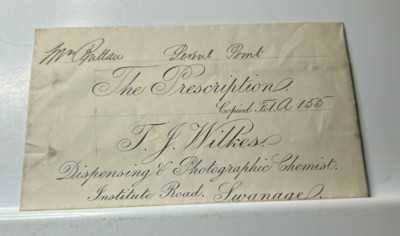 Point
The Prescription.
Copied Fol. A 155
T. J. Wilkes.
Dispensing & Photographic Chemist.
Institute Road. Swanage.